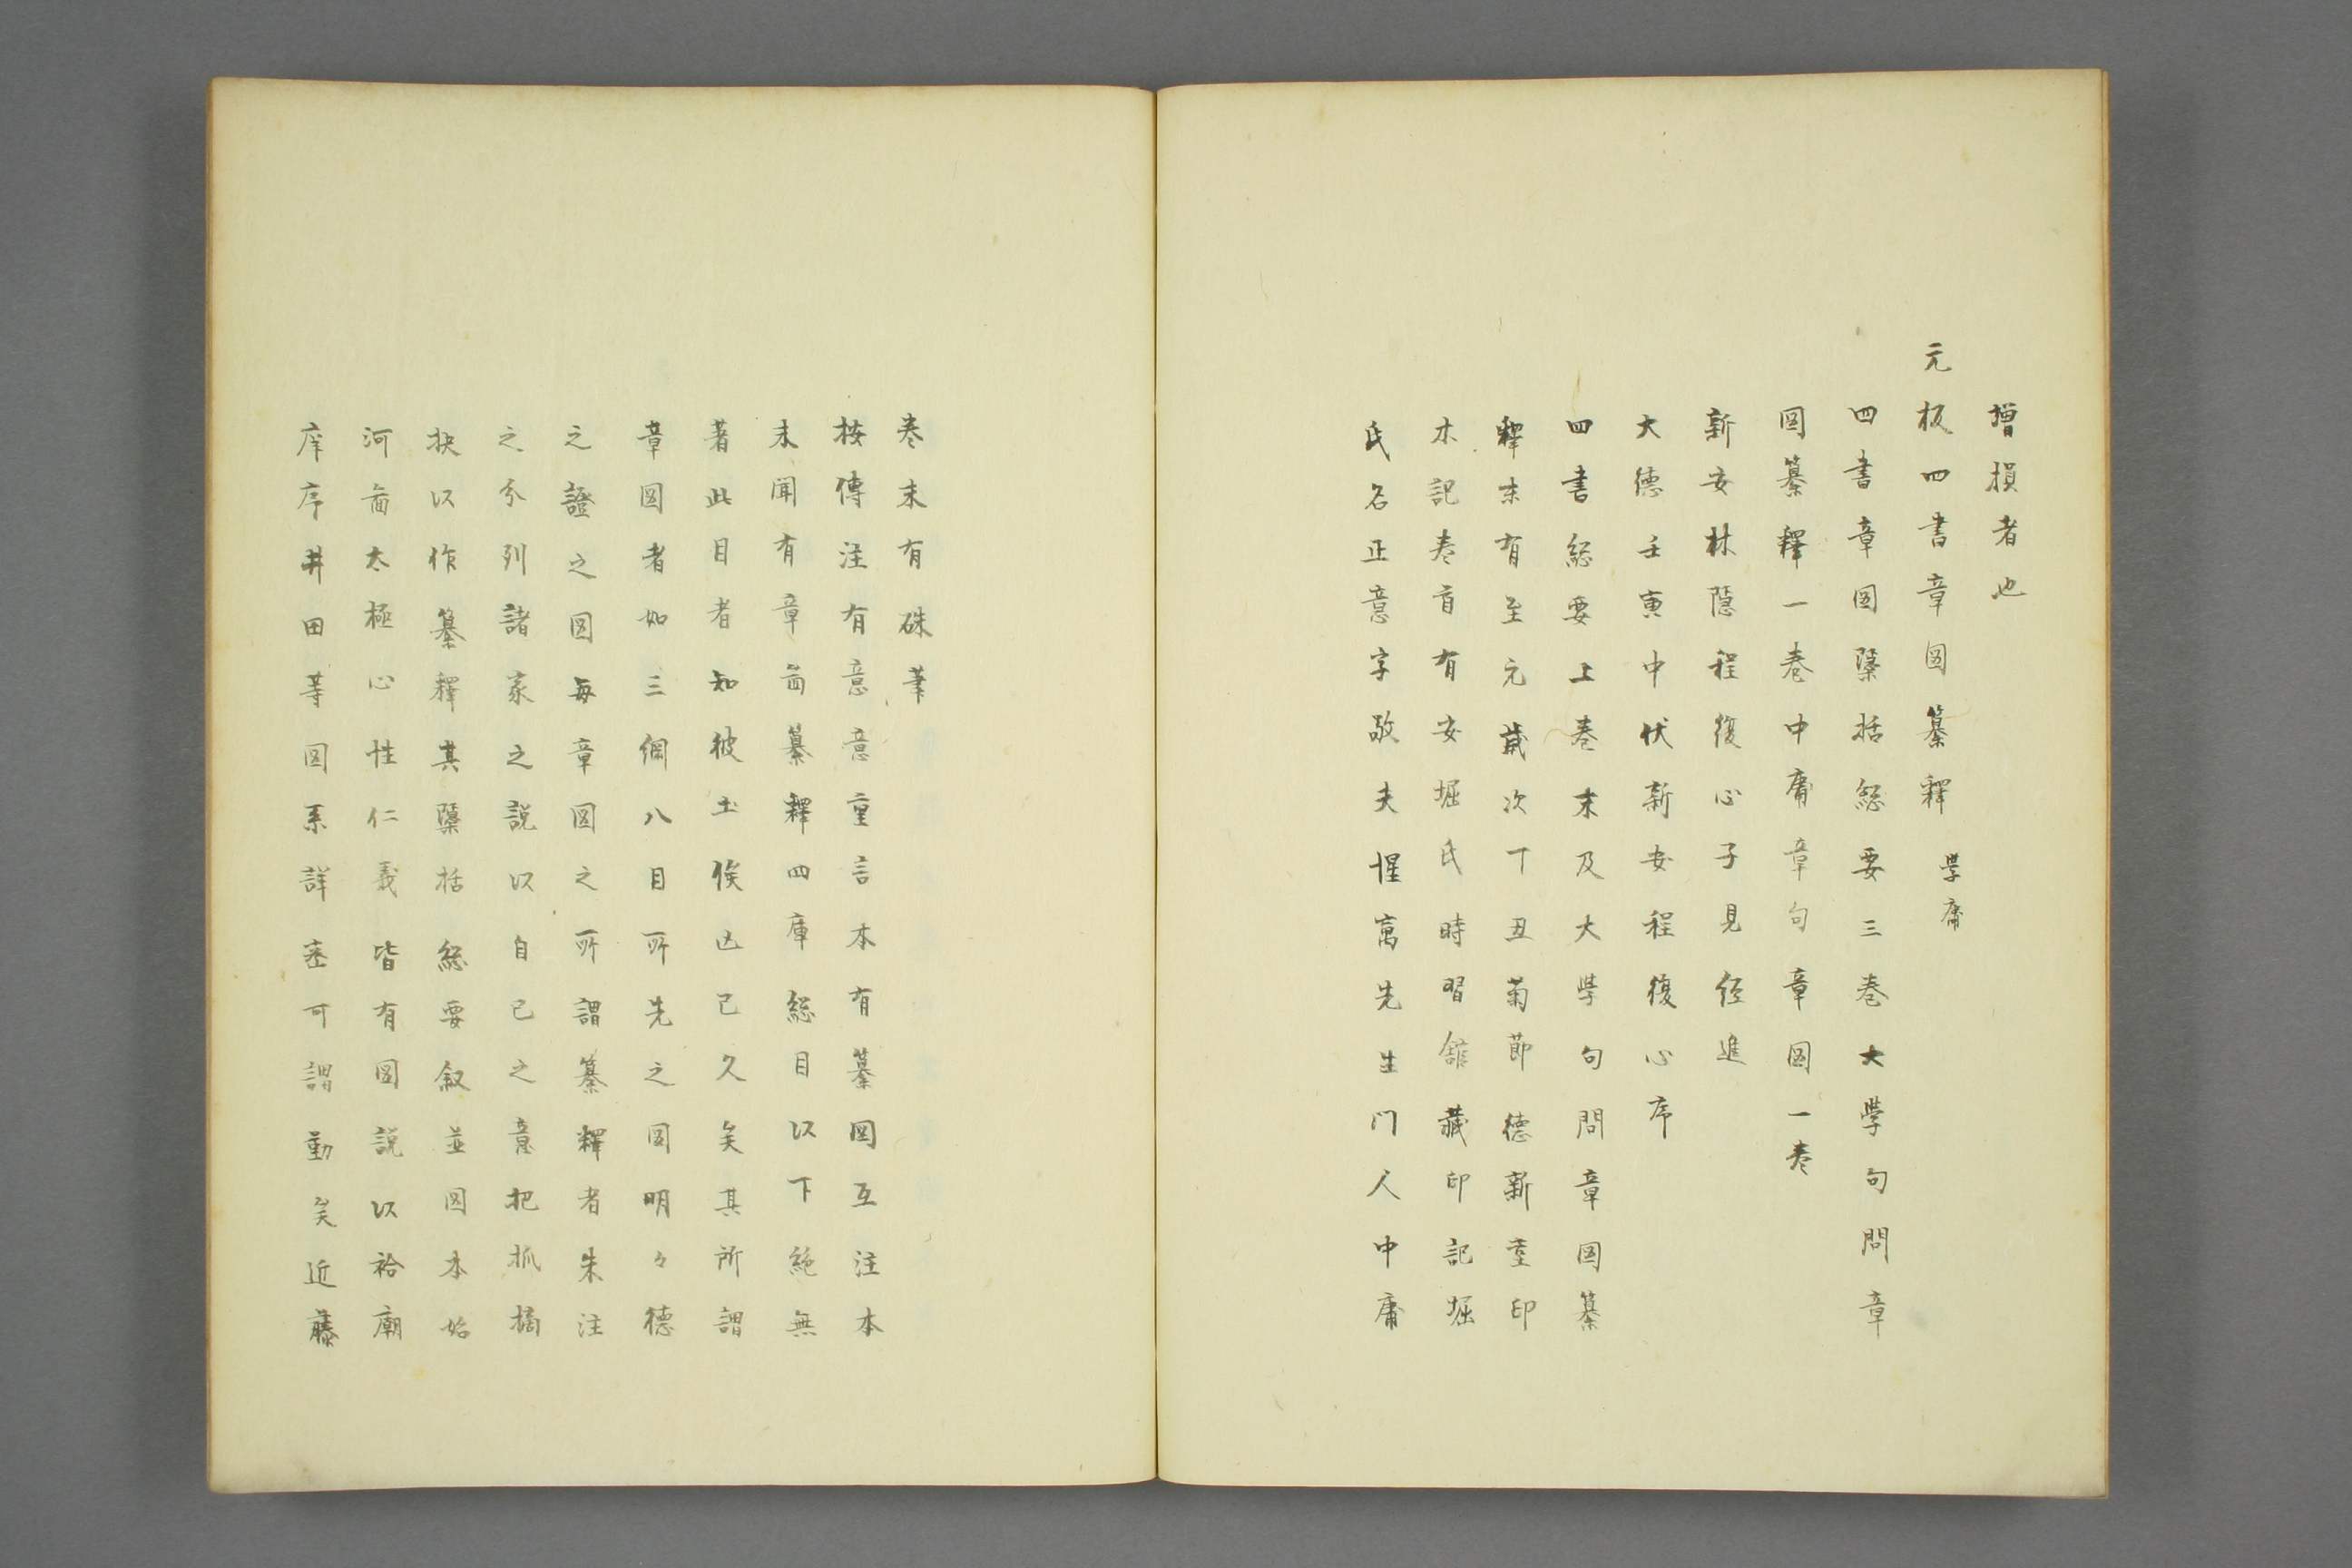 增損者也
元板四書章圖纂釋 學庸
四書章圖檃括總要三卷大學句問章
圖纂釋一卷中庸章句章圖一卷
新安林隱程復心子見經進
大德壬寅中伏新安程復心序
四書総要上卷末及大學句問章圖纂
釋末有至元歲次丁丑菊節德新堂印
木記卷首有安堀氏時習舘藏印記堀
氏名正意字敬夫惺窩先生门人中庸
卷末有硃筆
按傳注有意意重言本有纂圖互注本
未聞有章啚纂釋四庫総目以下絶無
著此目者知彼土佚亾已久矣其所謂
章圖者如三綱八目所先之圖明々德
之證之圖每章圖之所謂纂釋者朱注
之分列諸家之說以自己之意把抓摘
抉以作纂釋其檃括総要叙並圖本始
河啚太極心性仁義皆有圖說以袷廟
庠序井田等圖系詳悉可謂勤矣近藤